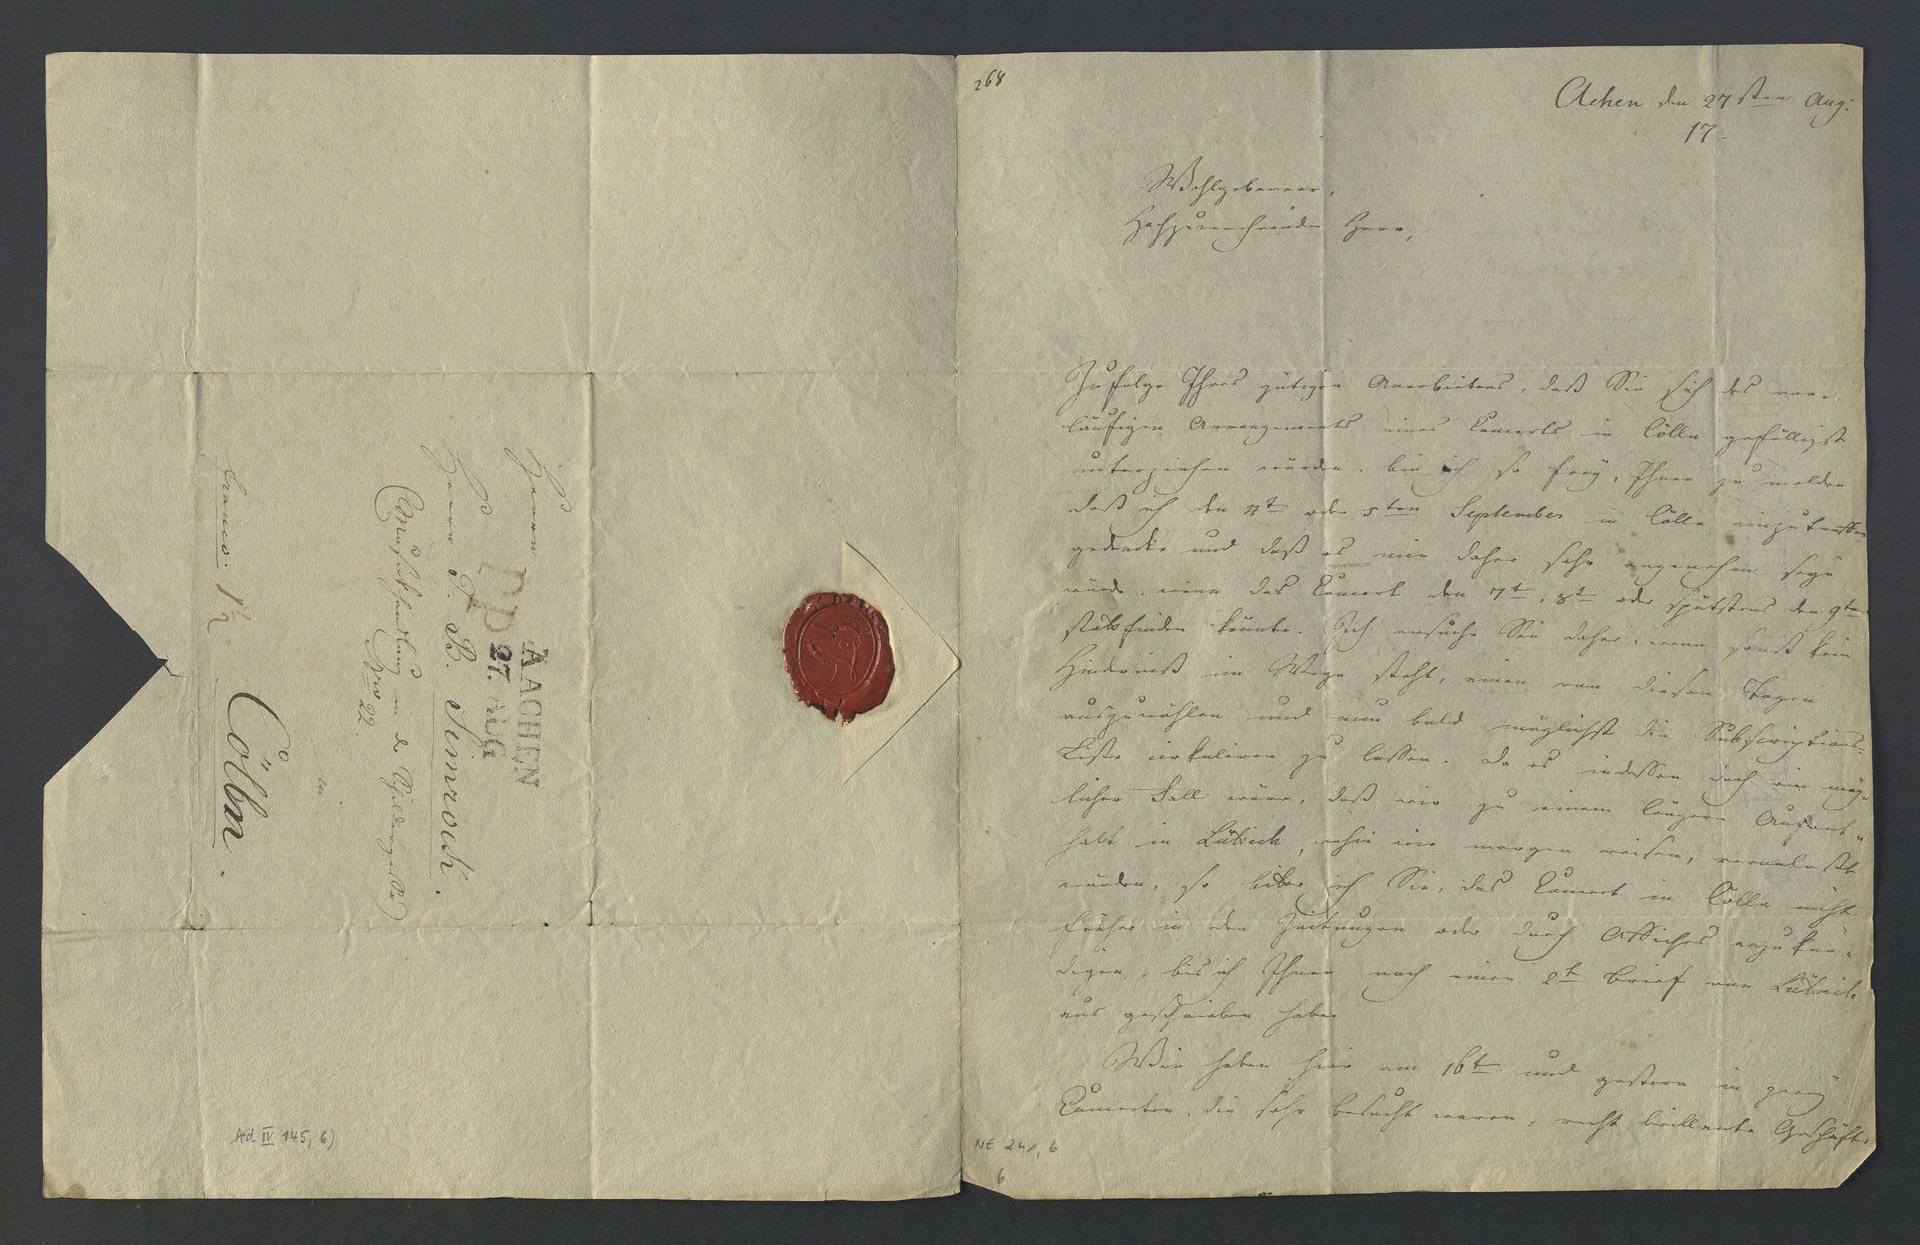 Herrn
Herrn P. J. Simrock.
(Musikhandlung in der Schildergasse)
Nro 22.
in
franco. 1½ Cölln.
PP
AACHEN
27. AUG
Ad IV 145, 6)
268
Achen den 27sten Aug:
17.
Wohlgeborner,
Hochzuverehrender Herr,
Zufolge Ihres gütigen Anerbietens, daß Sie sich des vor-
läufigen Arrangements eines Concerts in Cölln gefälligst
unterziehen würden, bin ich so frey, Ihnen zu melden
daß ich den 4t oder 5ten September in Cölln einzutreffen
gedenke und daß es mir daher sehr angenehm seyn
würde, wenn das Concert den 7t, 8t oder spätstens den 9ten
statsfinden könnte. Ich ersuche Sie daher, wenn sonst kein
Hinderniß im Wege steht, einen von diesen Tagen
auszuwählen und nun bald möglichst die Subscriptions-
Liste cirkuliren zu lassen. Da es indessen doch ein mög-
licher Fall wäre, daß wir zu einem längern Aufent-
halt in Lüttich, wohin wir morgen reisen, veranlaßt
würden, so bitte ich Sie, das Concert in Cölln nicht
früher in den Zeitungen oder durch Affichen anzukün-
digen, bis ich Ihnen noch einen 2t Brief von Lüttich
aus geschrieben habe.
Wir haben hier am 16t und gestern in zwey
Concerten, die sehr besucht waren, recht brillante Geschäfte
NE 241, 6
6